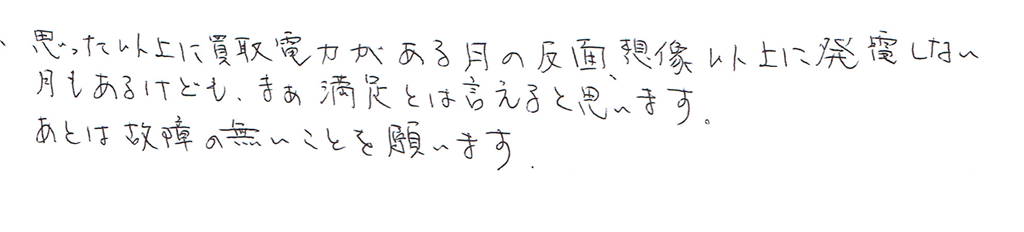 、思った以上に買取電力がある月の反面、想像以上に発電しない
月もあるけども、まぁ満足とは言えると思います。
あとは故障の無いことを願います.